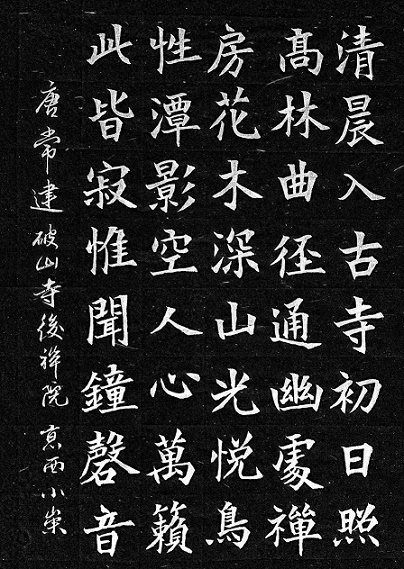 清晨入古寺初日照
髙林曲径通幽處禪
房花木深山光悦鳥
性潭影空人心萬籟
此皆寂惟聞鐘磬音
唐常建破山寺後禅院 京西小